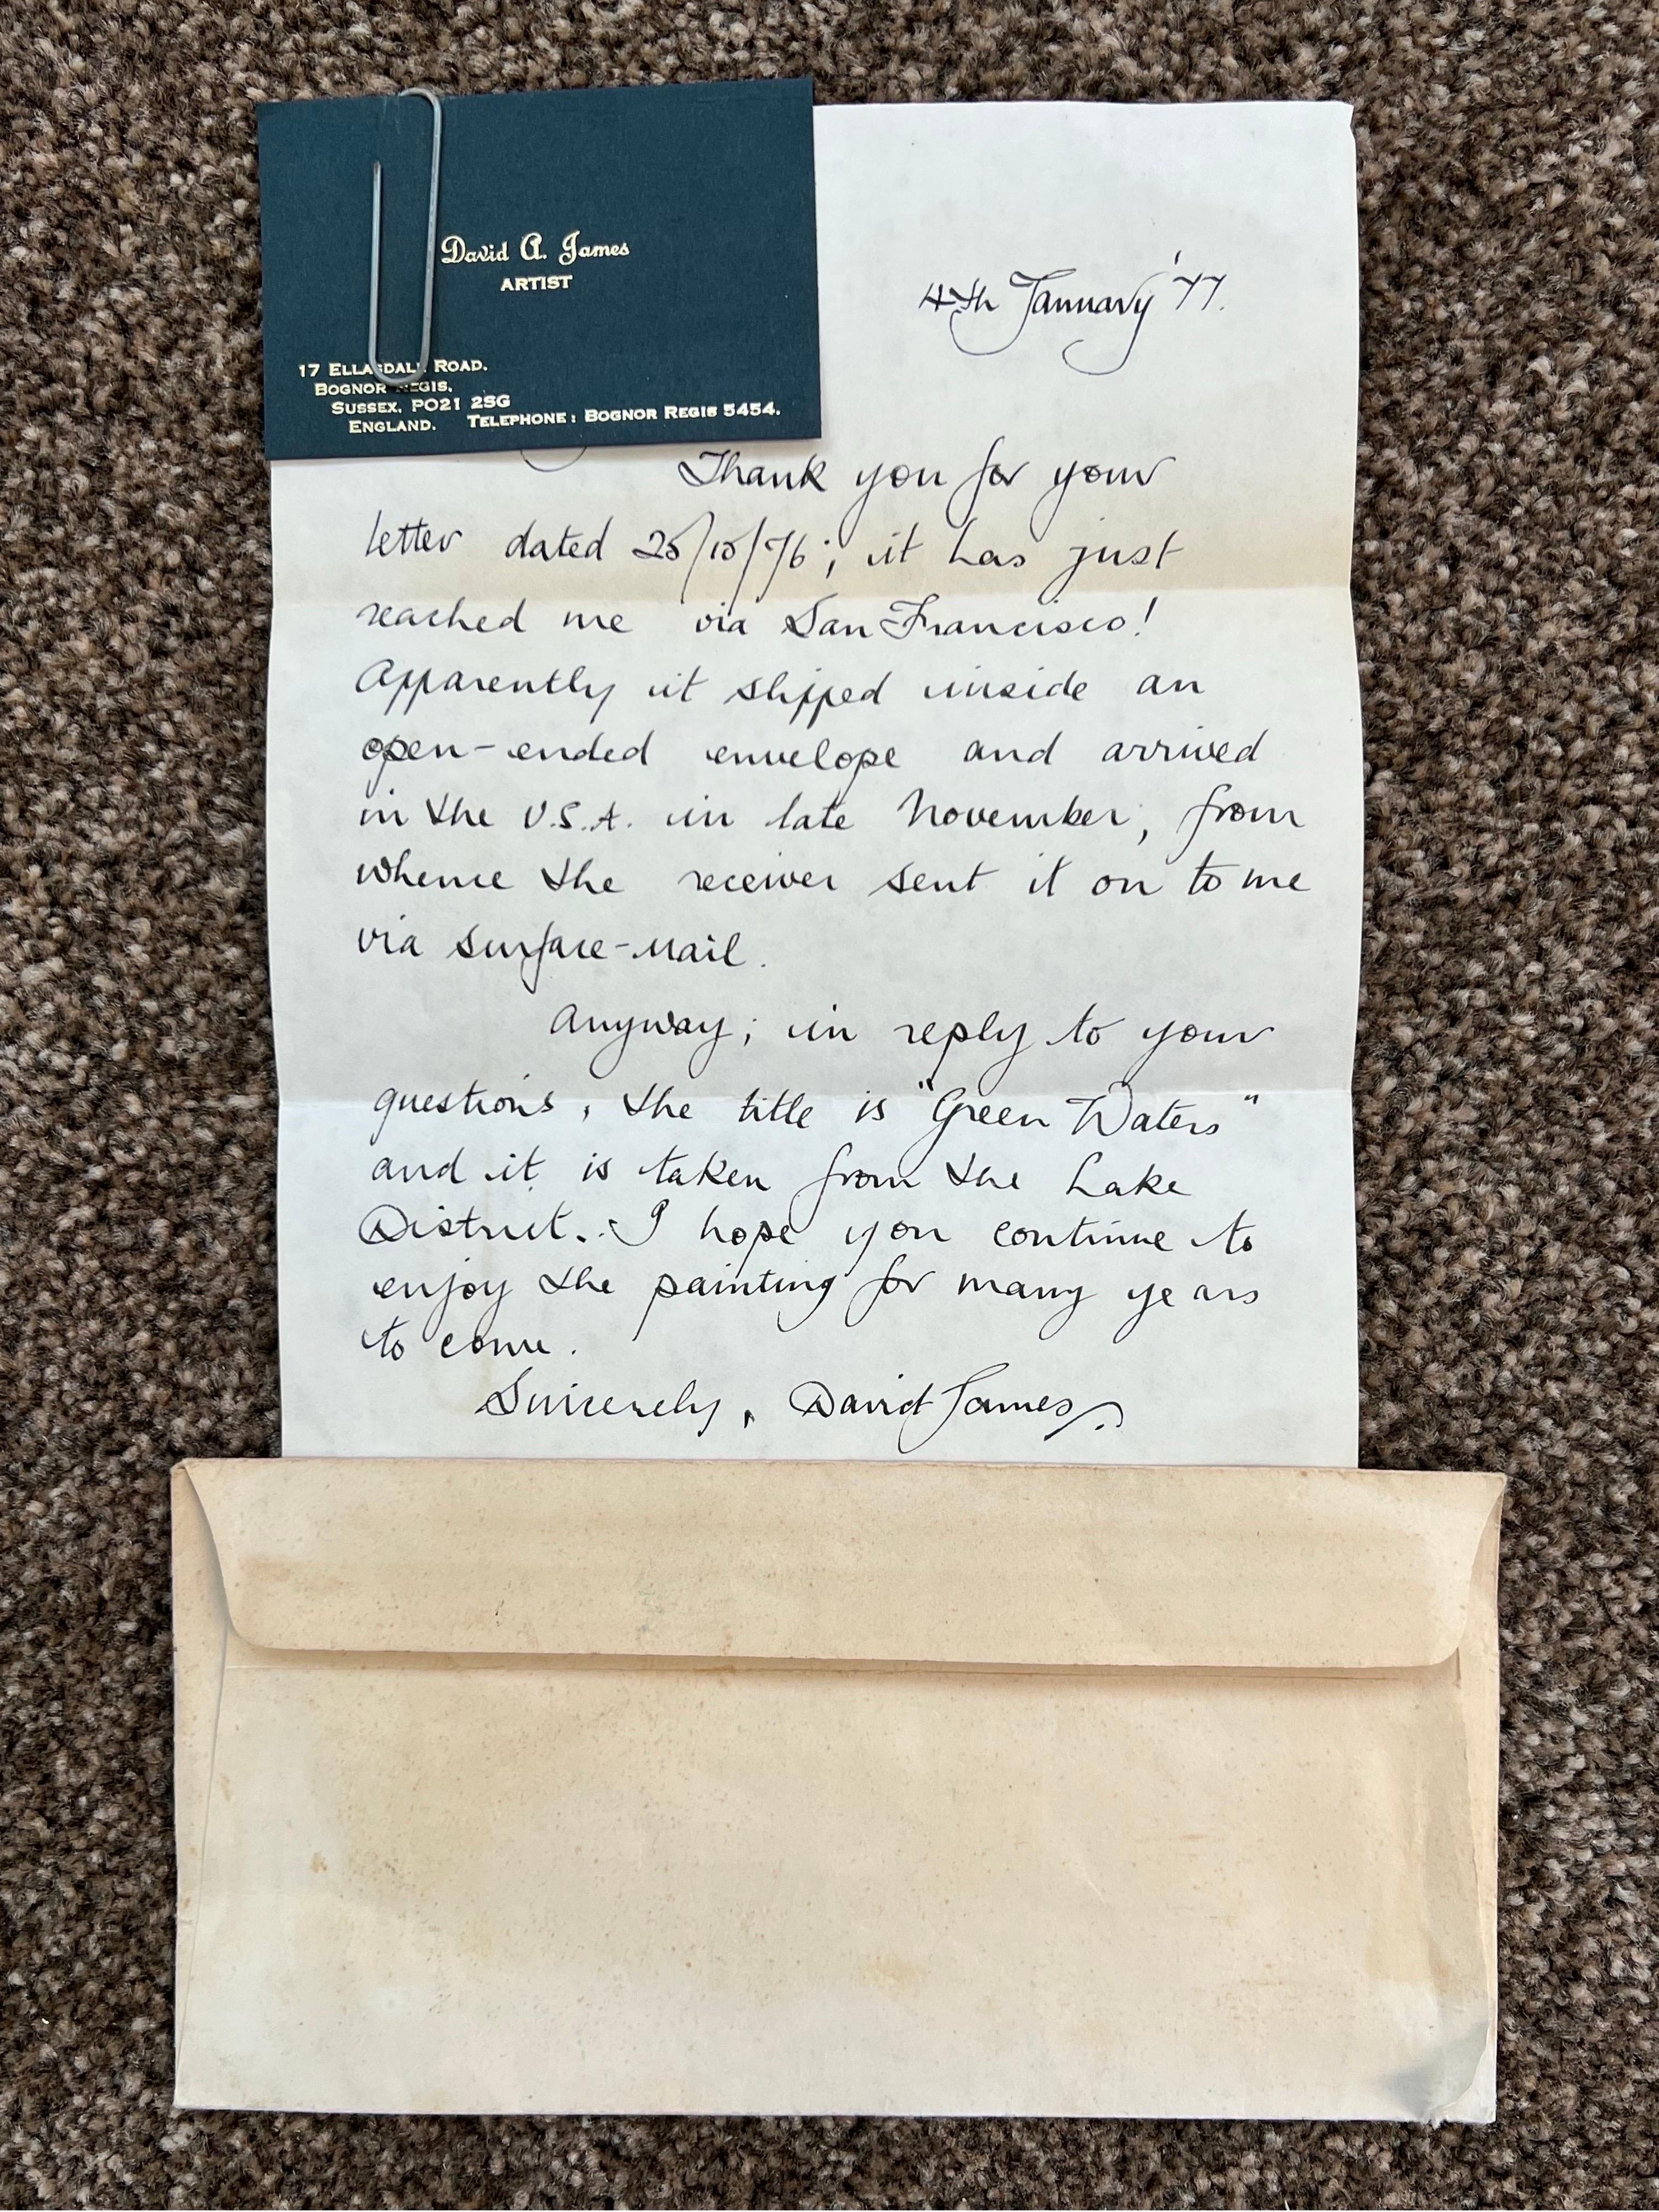 David A. James
ARTIST
17 ELLASDALE ROAD.
BOGNOR REGIS.
SUSSEX. PO21 2SG
ENGLAND. TELEPHONE: BOGNOR REGIS 5454.
4th January '77.
Thank you for your
letter dated 25/10/76; it has just
reached me via San Francisco!
Apparently it slipped inside an
open-ended envelope and arrived
in the U.S.A. in late November, from
whence the receiver sent it on to me
via surface-mail.
Anyway; in reply to your
questions, the title is "Green Waters"
and it is taken from the Lake
District. I hope you continue to
enjoy the painting for many years
to come.
Sincerely, David James.